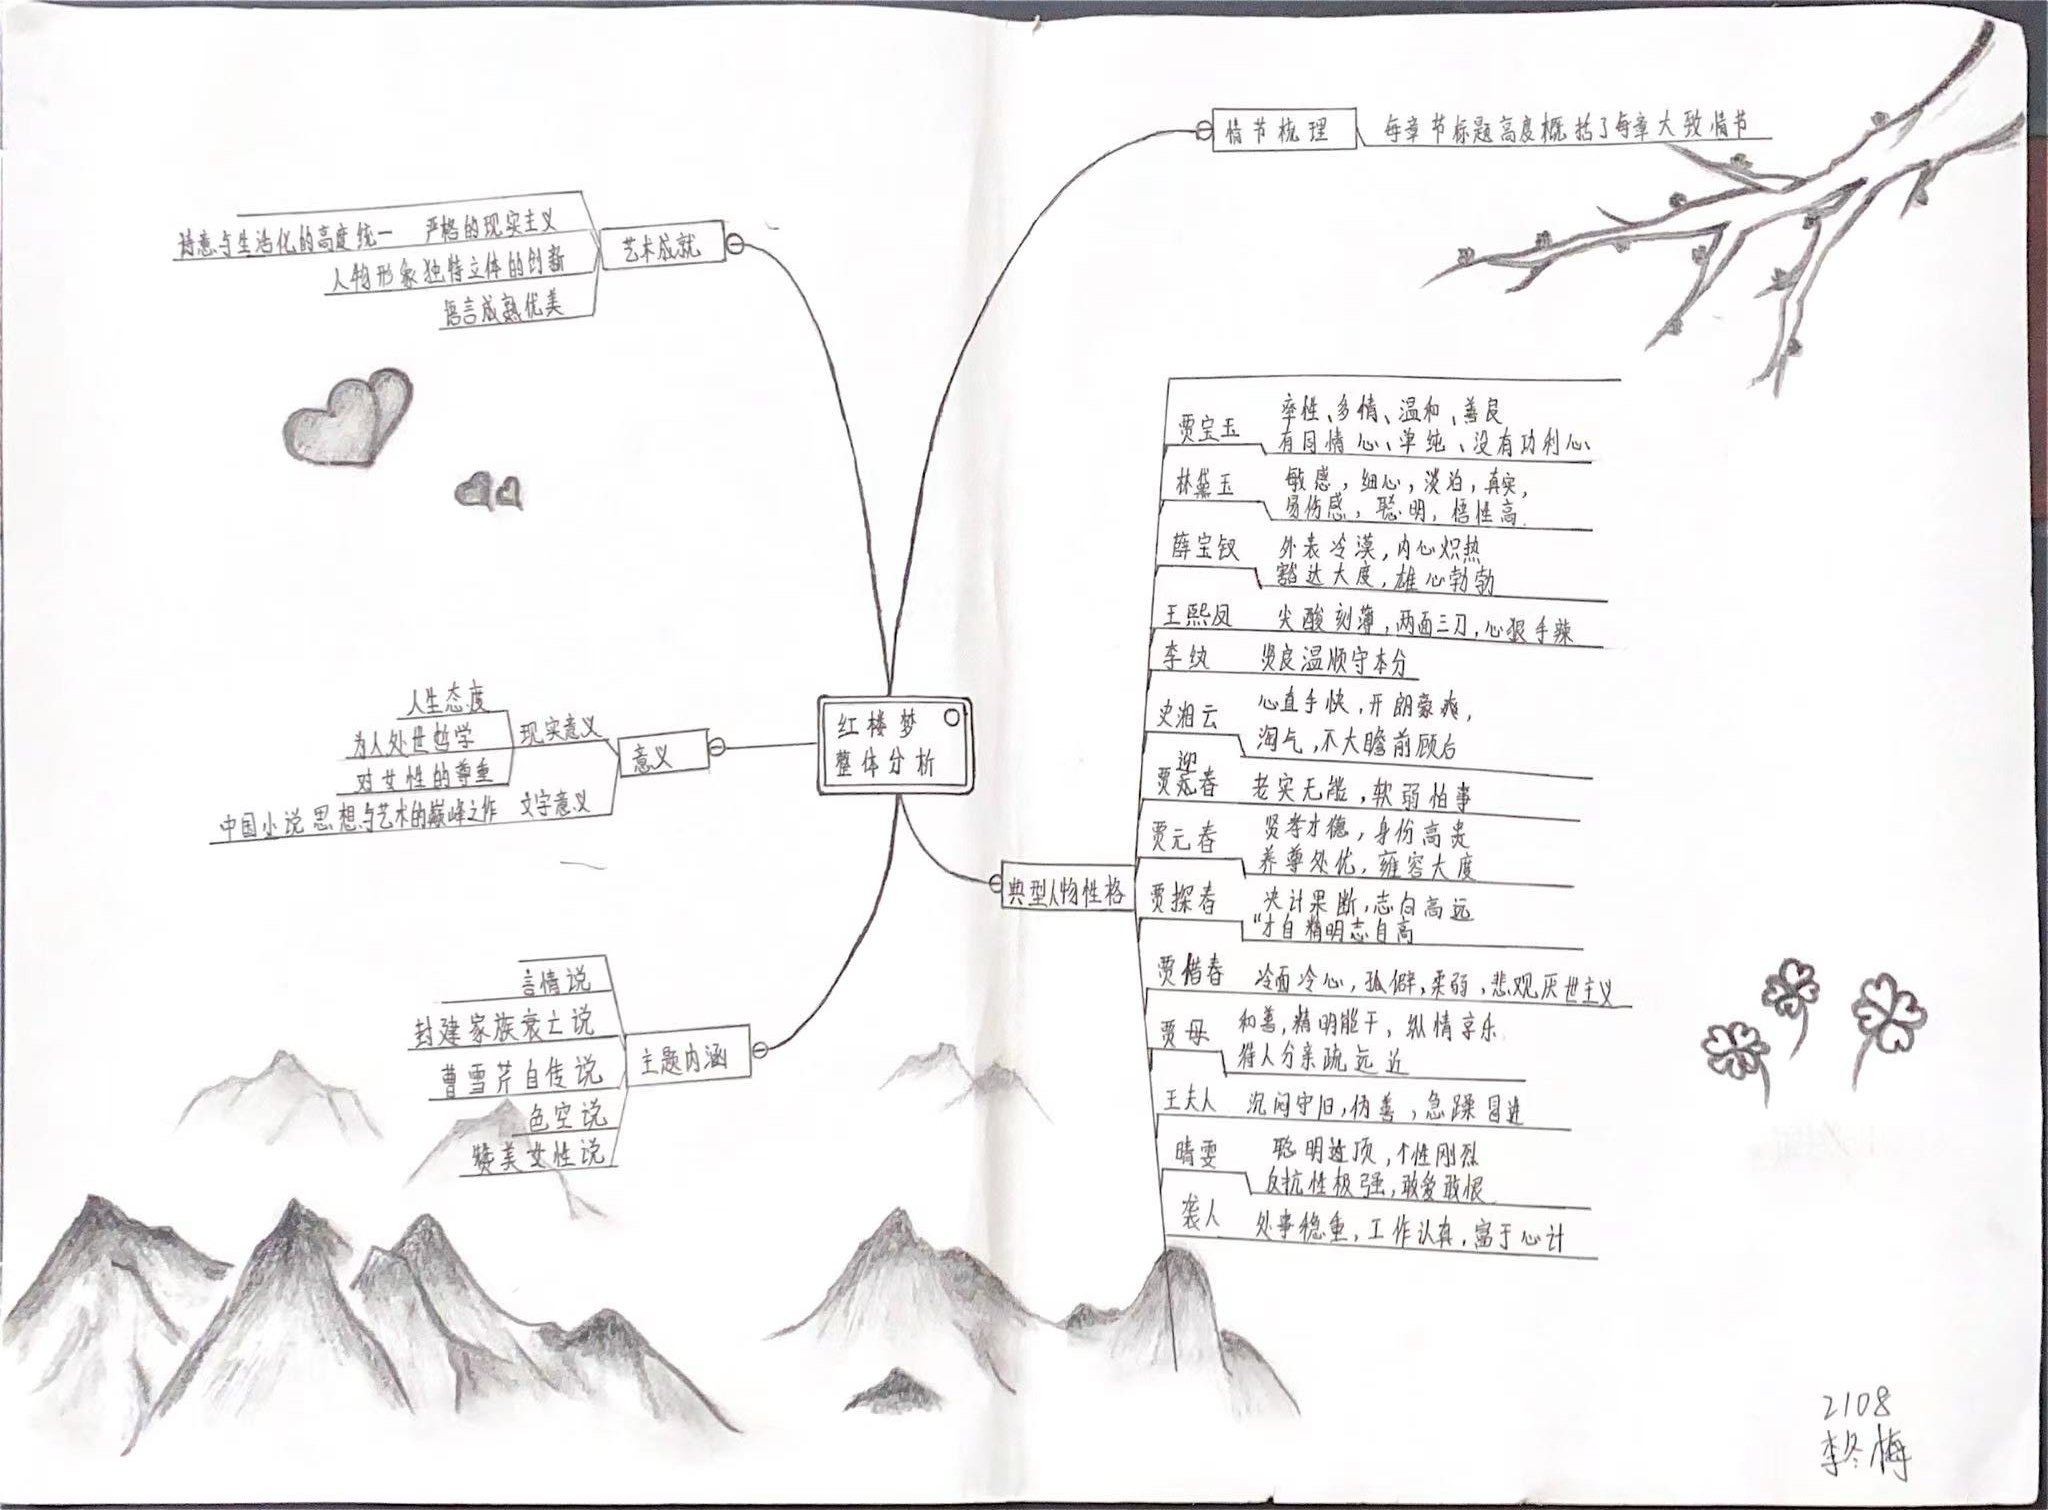 红楼梦
整体分析
情节梳理
每章节标题高度概括了每章大致情节
艺术成就
诗意与生活化的高度统一 严格的现实主义
人物形象独特立体的创新
语言成熟优美
意义
现实意义
人生态度
为人处世哲学
对女性的尊重
文字意义
中国小说思想与艺术的巅峰之作
主题内涵
言情说
封建家族衰亡说
曹雪芹自传说
色空说
赞美女性说
典型人物性格
贾宝玉
率性、多情、温和、善良
有同情心、单纯、没有功利心
林黛玉
敏感，细心，淡泊，真实，
易伤感，聪明，悟性高.
薛宝钗
外表冷漠，内心炽热
豁达大度，雄心勃勃
王熙凤 尖酸刻薄，两面三刀，心狠手辣
李纨 贤良温顺守本分
史湘云
心直手快，开朗豪爽，
淘气，不大瞻前顾后
贾迎春 老实无能，软弱怕事
贾元春
贤孝才德，身份高贵
养尊处优，雍容大度
贾探春
决计果断，志向高远
“才自精明志自高
贾惜春 冷面冷心，孤僻，柔弱，悲观厌世主义
贾母
和善，精明能干，纵情享乐.
待人分亲疏远近
王夫人 沉闷守旧，伪善，急躁冒进
晴雯
聪明过顶，个性刚烈
反抗性极强，敢爱敢恨.
袭人 处事稳重，工作认真，富于心计
2108
李冬梅